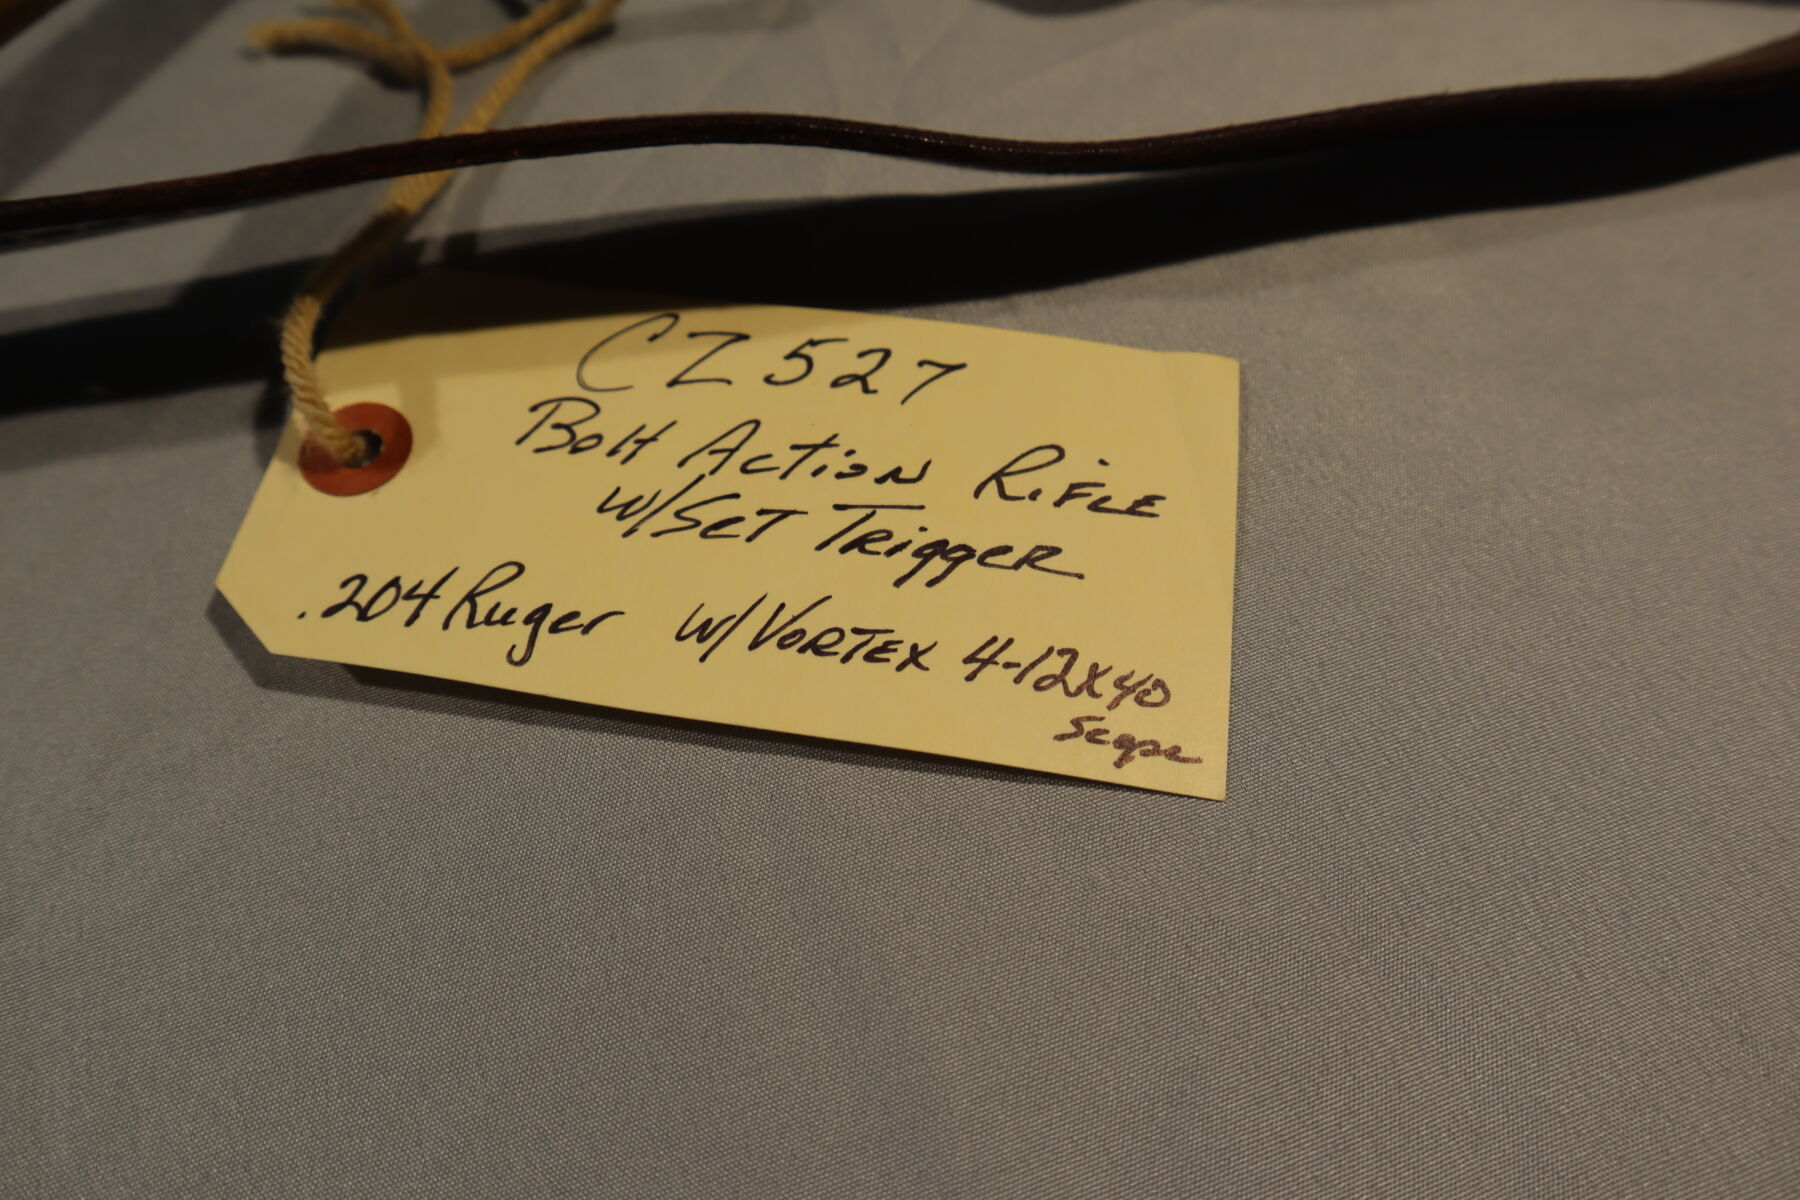 CZ 527
Bolt Action Rifle
w/Set Trigger
.204 Ruger w/Vortex 4-12x40
Scope